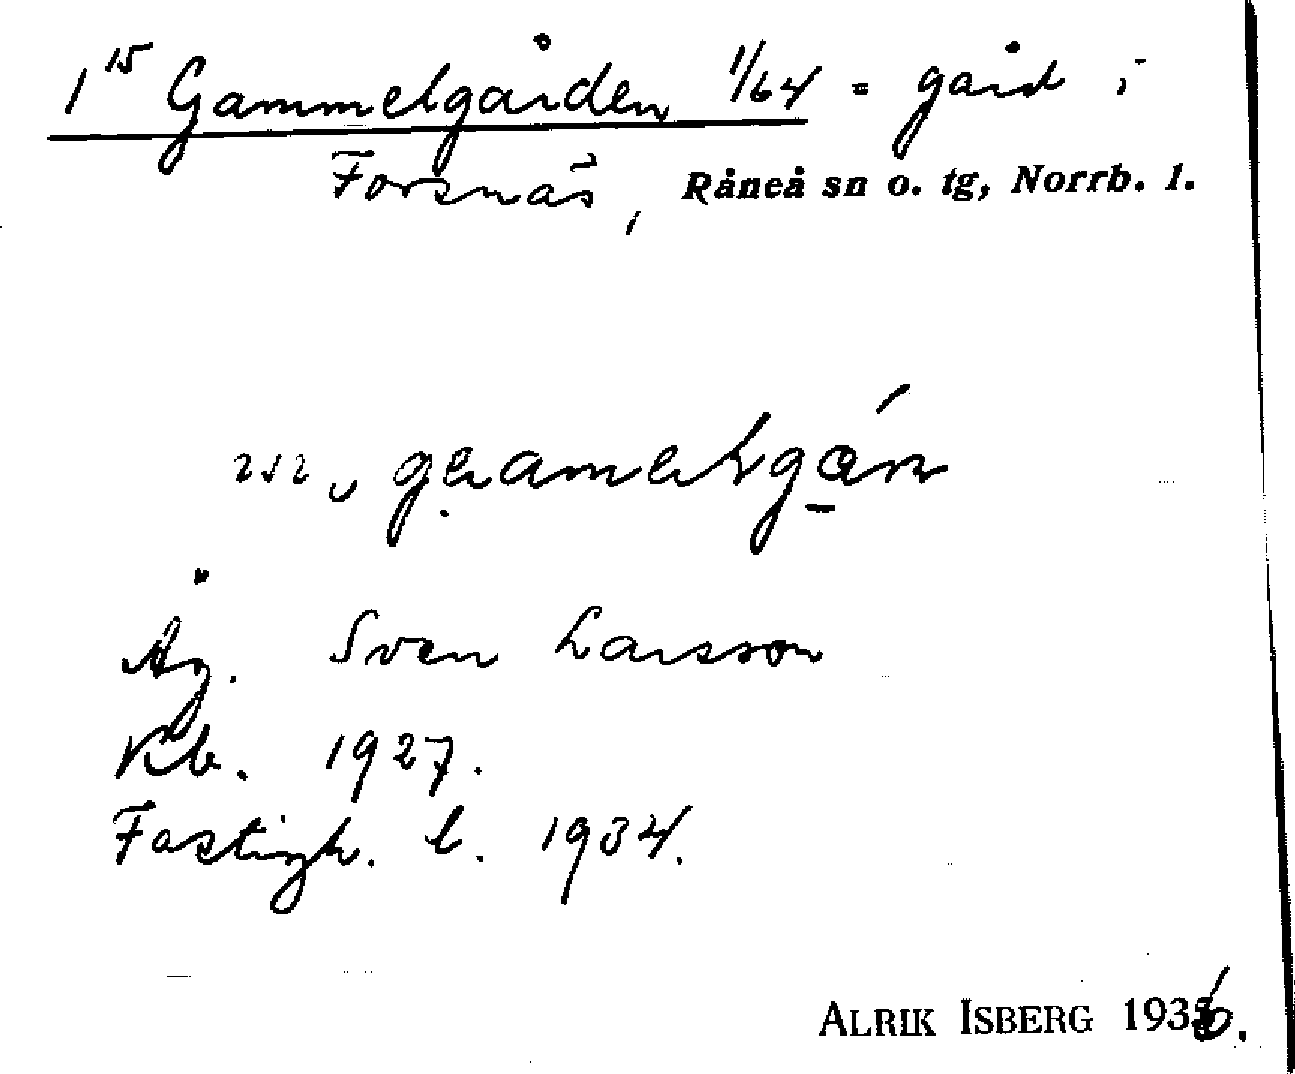 1¹⁵ Gammelgården 1/64 = gård i
Forsnäs, Råneå sn o. tg, Norrb. l.
Äg. Sven Larsson
Kb. 1927.
Fastigh. b. 1934.
ALRIK ISBERG 1936.